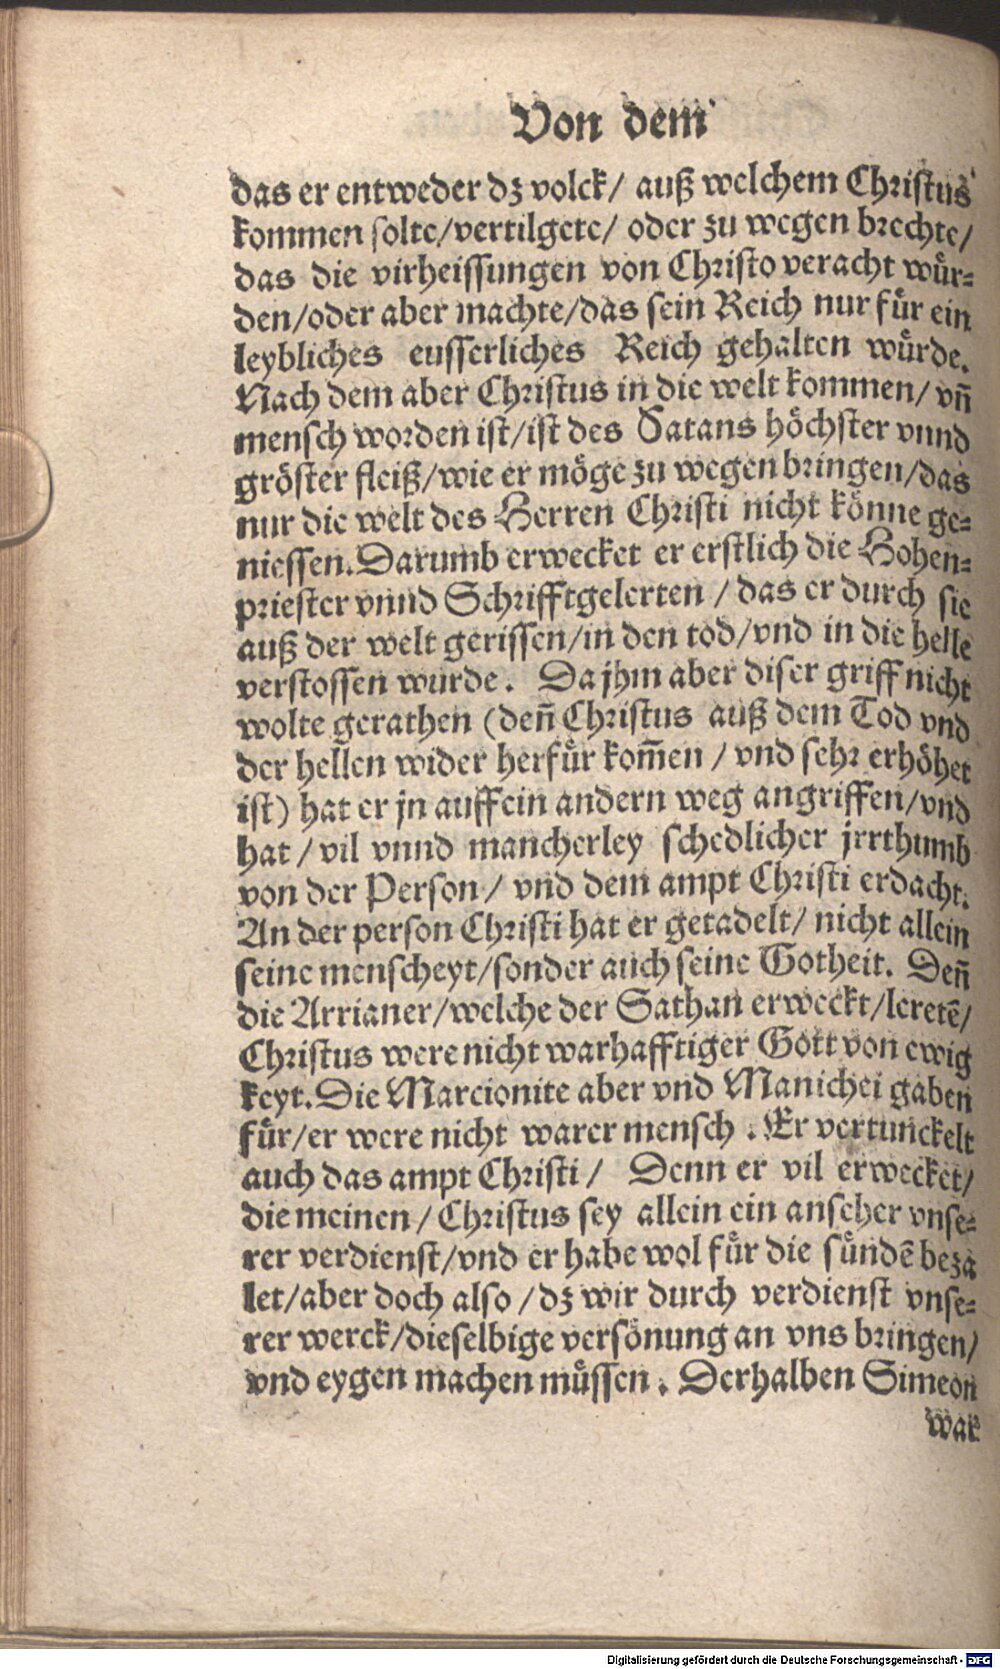 Von dem
das er entweder dz volck/ auß welchem Christus
kommen solte/vertilgete/ oder zu wegen brechte/
das die virheissungen von Christo veracht wuͤr-
den/oder aber machte/das sein Reich nur fuͤr ein
leybliches eusserliches Reich gehalten wuͤrde.
Nach dem aber Christus in die welt kommen/ vn̄
mensch worden ist/ist des Satans hoͤchster vnnd
groͤster fleiß/wie er moͤge zu wegen bringen/das
nur die welt des Herren Christi nicht koͤnne ge-
niessen. Darumb erwecket er erstlich die Hohen-
priester vnnd Schrifftgelerten / das er durch sie
auß der welt gerissen/in den tod/vnd in die helle
verstossen wurde. Da jhm aber diser griff nicht
wolte gerathen (den̄ Christus auß dem Tod vnd
der hellen wider herfuͤr kom̄en / vnd sehr erhoͤhet
ist) hat er jn auff ein andern weg angriffen/vnd
hat / vil vnnd mancherley schedlicher jrrthumb
von der Person/ vnd dem ampt Christi erdacht.
An der person Christi hat er getadelt/ nicht allein
seine menscheyt/sonder auch seine Gotheit. Den̄
die Arrianer/welche der Sathan erweckt/leretē/
Christus were nicht warhafftiger Gott von ewig
keyt. Die Marcionite aber vnd Manichei gaben
fuͤr/er were nicht warer mensch . Er vertunckelt
auch das ampt Christi / Denn er vil erwecket/
die meinen / Christus sey allein ein anseher vnse-
rer verdienst/vnd er habe wol fuͤr die suͤndē beza
let/aber doch also / dz wir durch verdienst vnse-
rer werck/dieselbige versoͤnung an vns bringen/
vnd eygen machen muͤssen . Derhalben Simeon
war
Digitalisierung gefördert durch die Deutsche Forschungsgemeinschaft - DFG